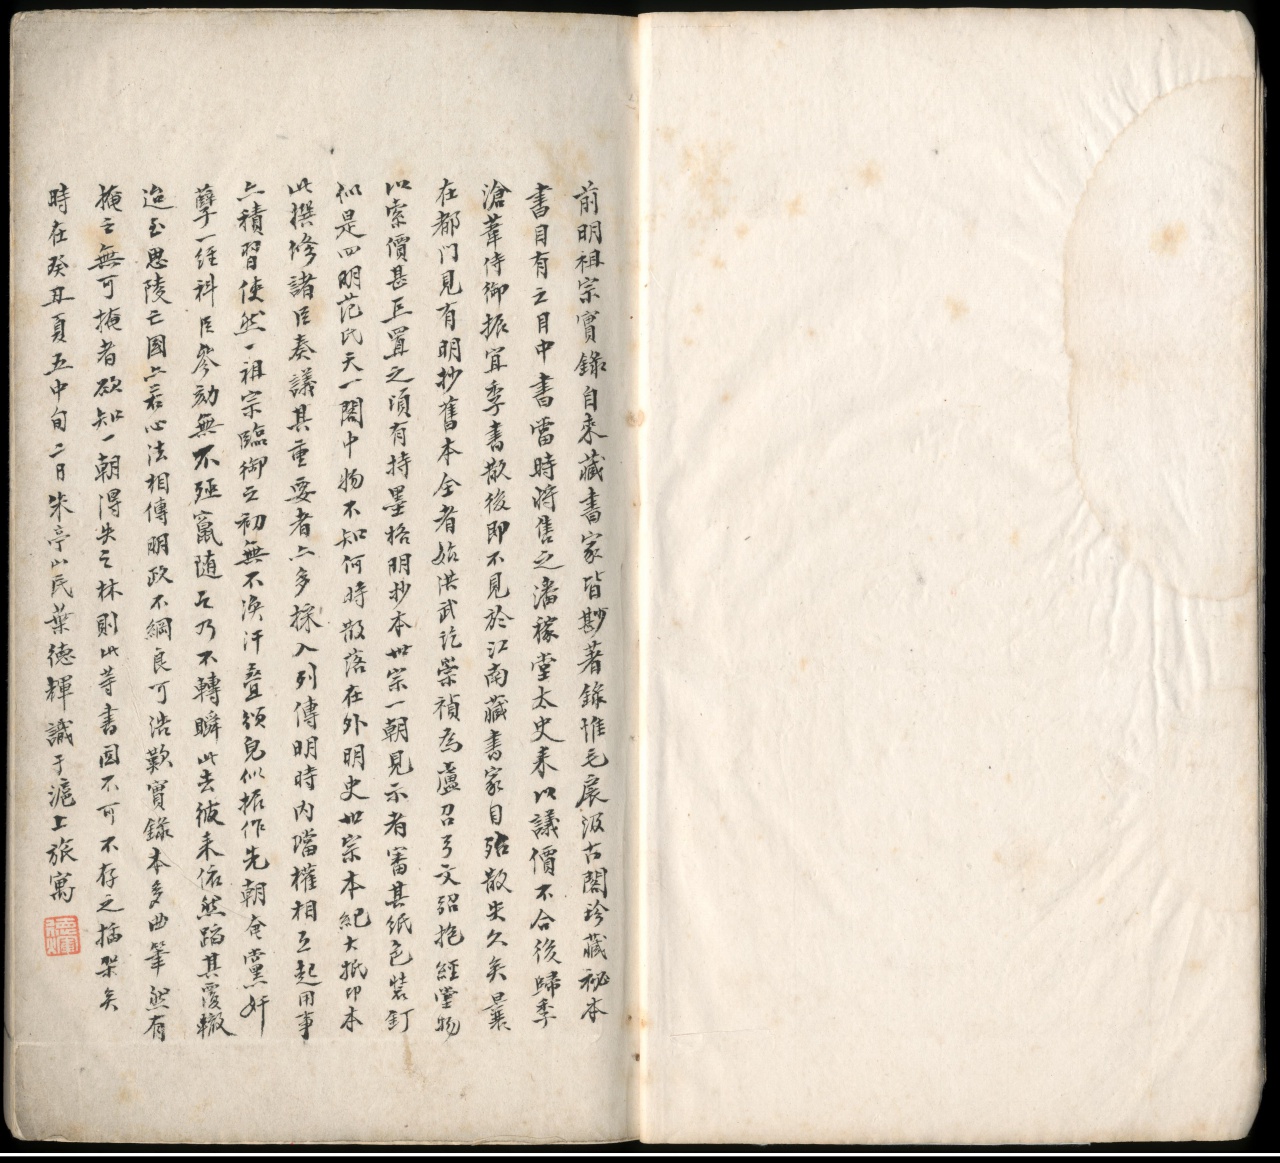 前明祖宗實錄自來藏書家皆尠著錄惟毛扆汲古閣珍藏祕本
書目有之目中書當時將售之潘稼堂太史耒以議價不合後歸季
滄葦侍御振宜季書散後即不見於江南藏書家目殆散失久矣曩
在都門見有明抄舊本全者始洪武訖崇禎為盧召弓文弨抱經堂物
以索價甚巨置之頃有持墨格明抄本世宗一朝見示者審其紙色裝釘
似是四明范氏天一閣中物不知何時散落在外明史世宗本紀大抵即本
此撰修諸臣奏議其重要者亦多採入列傳明時內璫權相互起用事
亦積習使然一祖宗臨御之初無不渙汗疊頒皃似振作先朝奄黨奸
孽一經科臣參劾無不殛竄隨之乃不轉瞬此去彼來依然蹈其覆轍
迨至思陵亡國亦若心法相傳明政不綱良可浩歎實錄本多曲筆然有
掩之無可掩者欲知一朝得失之林則此等書固不可不存之插架矣
時在癸丑夏五中旬二日朱亭山民葉德輝識于滬上旅寓
德輝